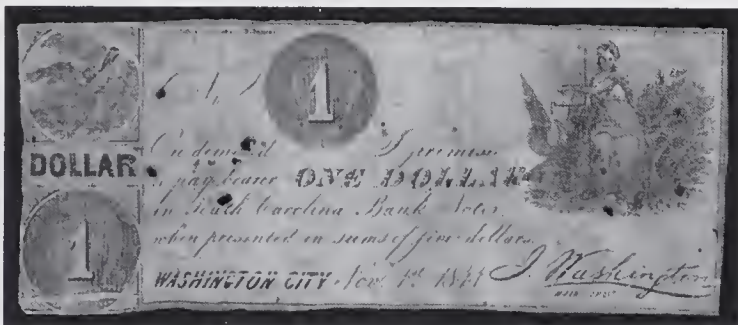 1
On demand I promise
to pay bearer ONE DOLLAR
in South Carolina Bank Notes
when presented in sums of five dollars.
WASHINGTON CITY Nov. 1st
J. Washington
DOLLAR
1